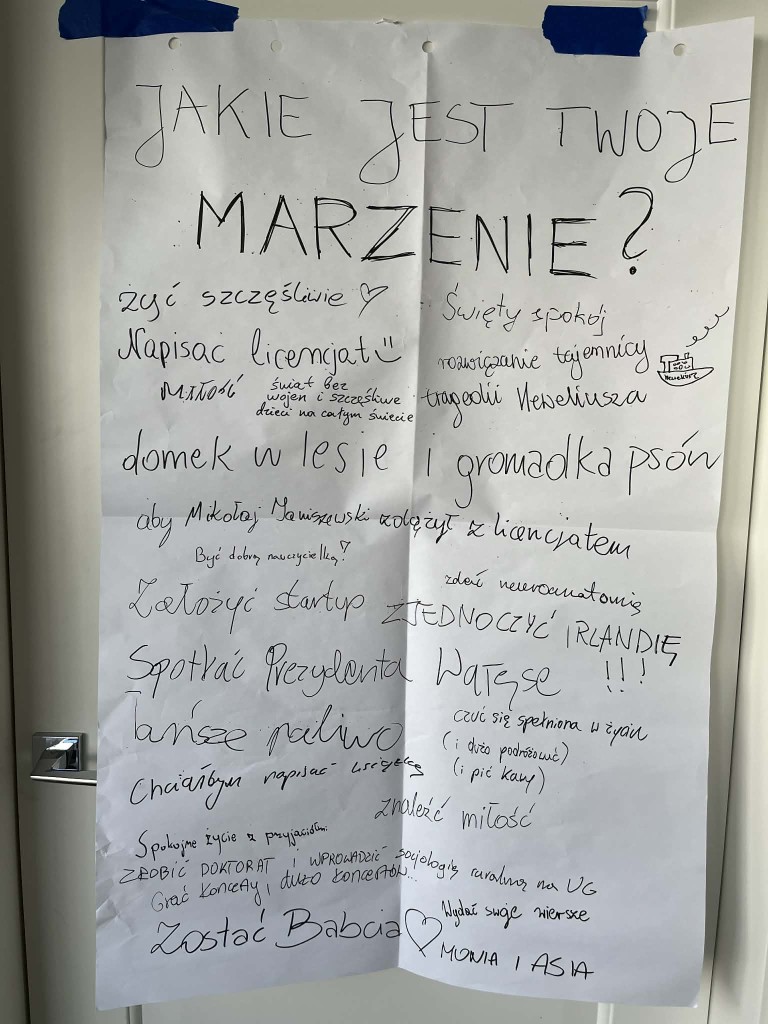 JAKIE JEST TWOJE
MARZENIE?
żyć szczęśliwie
Święty spokój
Napisać licencjat
rozwiązanie tajemnicy
tragedii Heweliusza
MIŁOŚĆ
świat bez
wojen i szczęśliwe
dzieci na całym świecie
domek w lesie i gromadka psów
aby Mikołaj Janiszewski zdążył z licencjatem
Być dobrą nauczycielką!
zdać neuroanatomię
Założyć startup
ZJEDNOCZYĆ IRLANDIĘ
!!!
Spotkać Prezydenta Wałęsę
Tańsze paliwo
czuć się spełniona w życiu
(i dużo podróżować)
(i pić kawę)
Chciałbym napisać książkę
znaleźć miłość
Spokojne życie z przyjaciółmi
ZROBIĆ DOKTORAT i WPROWADZIĆ socjologię ruralną na UG
Grać koncerty, dużo koncertów...
Wydać swoje wiersze
Zostać Babcią
MONIA I ASIA